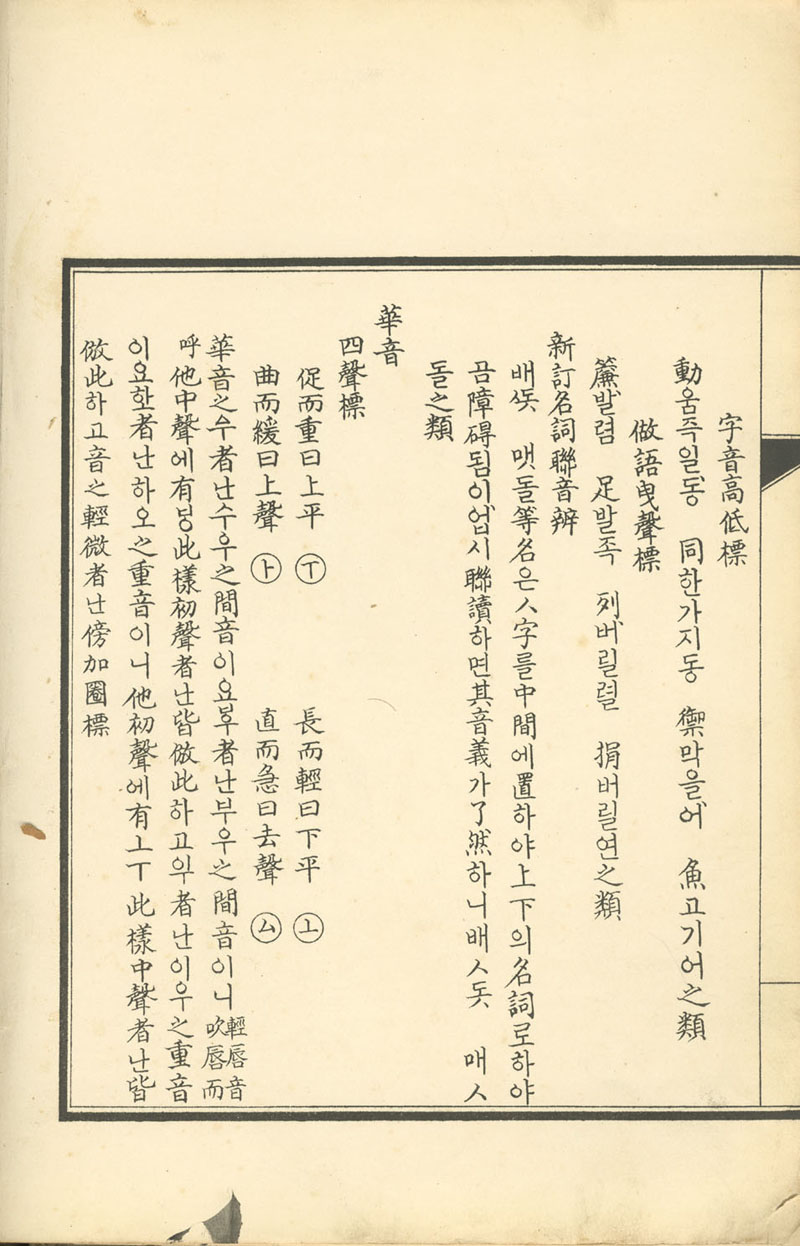 字音高低標
動움즉일동 同한가지동 禦막을어 魚고기어之類
倣語曳聲標
簾발렴 足발족 列버릴렬 捐버릴연之類
新訂名詞聯音辨
배돗 맷돌等名은ㅅ字를中間에置하야上下의名詞로하야
곰障碍됨이업시聯讀하면其音義가了然하니배ㅅ돗 매ㅅ
돌之類
華音
四聲標
促而重曰上平 ㅜ 長而輕曰下平 ㅗ
曲而緩曰上聲 ㅏ 直而急曰去聲 ㅿ
華音之수者난수우之間音이요부者난부우之間音이니 輕唇音
吹唇而
呼他中聲에有 此樣初聲者난皆倣此하고 者난이우之重音
이요 者난하오之重音이니他初聲에有ㅗㅜ此樣中聲者난皆
倣此하고音之輕微者난傍加圈標